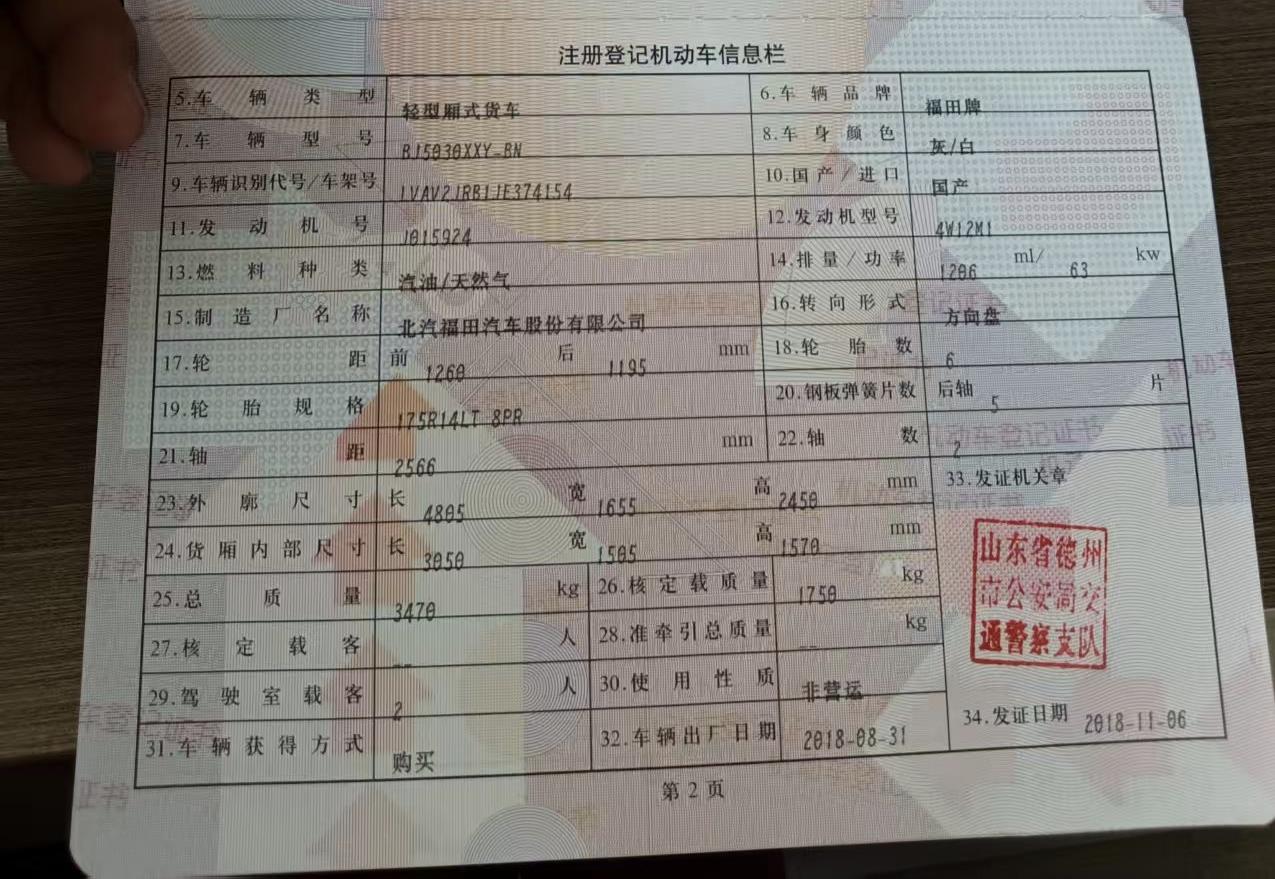 注册登记机动车信息栏
5.车辆类型 轻型厢式货车 6.车辆品牌 福田牌
7.车辆型号 BJ5030XXY-BN 8.车身颜色 灰/白
9.车辆识别代号/车架号 LVAV2JRB1JE374154 10.国产/进口 国产
11.发动机号 J015924 12.发动机型号 4W12M1
13.燃料种类 汽油/天然气 14.排量/功率 1206 ml/ 63 kw
15.制造厂名称 北汽福田汽车股份有限公司 16.转向形式 方向盘
17.轮距 前 1260 后 1195 mm 18.轮胎数 6
19.轮胎规格 175R14LT 8PR 20.钢板弹簧片数 后轴 5 片
21.轴距 2566 mm 22.轴数 2
23.外廓尺寸 长 4805 宽 1655 高 2450 mm 33.发证机关章
24.货厢内部尺寸 长 3050 宽 1505 高 1570 mm
25.总质量 3470 kg 26.核定载质量 1750 kg
27.核定载客 -- 人 28.准牵引总质量 -- kg
29.驾驶室载客 2 人 30.使用性质 非营运
31.车辆获得方式 购买 32.车辆出厂日期 2018-08-31 34.发证日期 2018-11-06
山东省德州
市公安局交
通警察支队
第2页